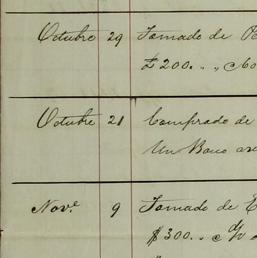 Octubre 29 Tomado de
£200.
Octubre 21 Comprado de
Un Baúl
Nov.e 9 Tomado de
$300.